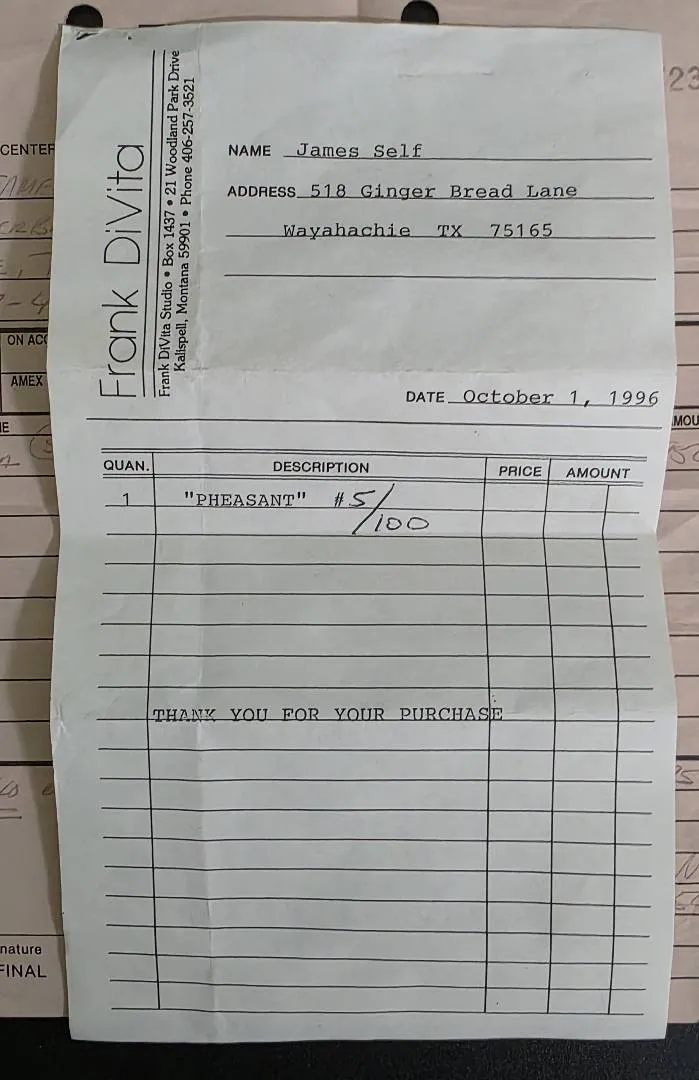 Frank DiVita
Frank DiVita Studio • Box 1437 • 21 Woodland Park Drive
Kalispell, Montana 59901 • Phone 406-257-3521
NAME James Self
ADDRESS 518 Ginger Bread Lane
Wayahachie TX 75165
DATE October 1, 1996
QUAN. DESCRIPTION PRICE AMOUNT
1 "PHEASANT" #5/100
THANK YOU FOR YOUR PURCHASE
23
CENTER
ON ACC
AMEX
MOU
nature
FINAL